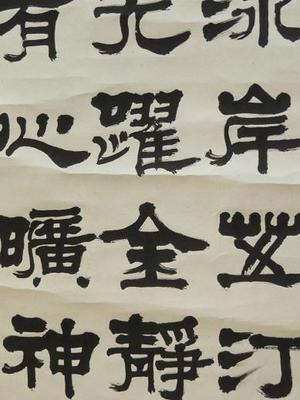 泳岸芷汀
光躍金靜
有心曠神